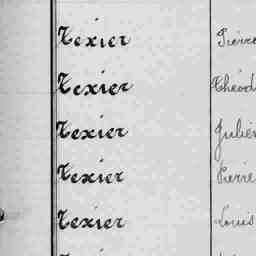 Texier Pierre
Texier Théod
Texier Julien
Texier Pierre
Texier Louis